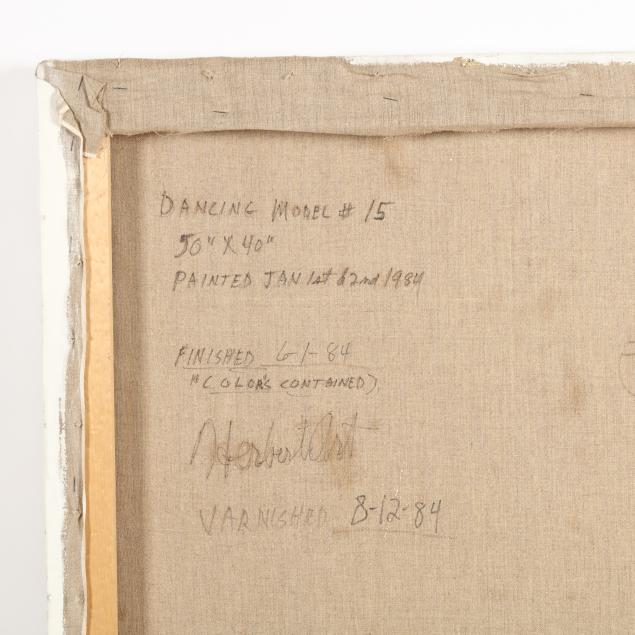 DANCING MODEL # 15
50" X 40"
PAINTED JAN 1st & 2nd 1984
FINISHED 6-1-84
"(COLOR'S CONTAINED)
Herbert Art
VARNISHED 8-12-84